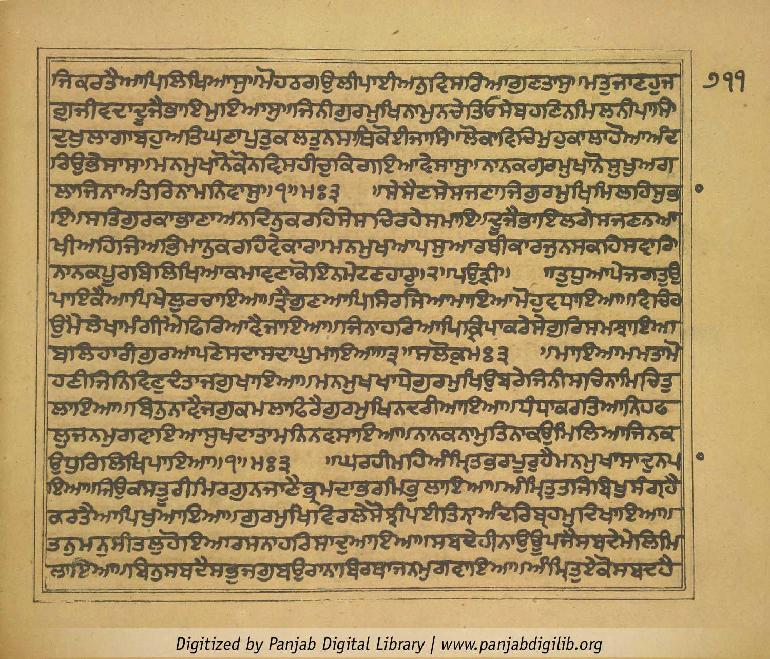 ਜਿਕਰਤੈਆਪਿਲਿਖਿਆਸੁ॥ਮੋਹਠਗਉਲੀਪਾਈਅਨੁਵਿਸਰਿਆਗੁਣਤਾਸੁ॥ਮਤੁਜਾਣਹੁਜ ੭੧੧
ਗੁਜੀਵਦਾਦੂਜੈਭਾਇਮੁਇਆਸੁ॥ਜਿਨੀਗੁਰਮੁਖਿਨਾਮੁਨਚੇਤਿਓਸੇਬਹਣਿਨਮਿਲਨੀਪਾਸਿ
ਦੁਖੁਲਾਗਾਬਹੁਅਤਿਘਣਾਪੁਤੁਕਲਤੁਨਸਾਥਿਕੋਈਜਾਸਿ॥ਲੋਕਾਵਿਚਿਮੁਹੁਕਾਲਾਹੋਆਅੰਦ
ਰਿਉਭੇਸਾਸਾ॥ਮਨਮੁਖਾਨੋਕੋਨਵਿਸਹੀਚੁਕਿਗਇਆਵੇਸਾਸੁ॥ਨਾਨਕਗੁਰਮੁਖਾਨੋਸੁਖੁਅਗ
ਲਾਜਿਨਾਅੰਤਰਿਨਾਮਨਿਵਾਸੁ॥੧॥ਮਃ੩ ॥ਸੇਸੈਣਸੇਸਜਣਾਜੇਗੁਰਮੁਖਿਮਿਲਹਿਸੁਭ
ਇ॥ਸਤਿਗੁਰਕਾਭਾਣਾਅਨਦਿਨੁਕਰਹਿਸੇਸਚਿਰਹੇਸਮਾਇ॥ਦੂਜੈਭਾਇਲਗੇਸਜਣਨਆ
ਖੀਅਹਿਜਿਅਭਿਮਾਨੁਕਰਹਿਵੇਕਾਰ॥ਮਨਮੁਖਆਪਸੁਆਰਥੀਕਾਰਜੁਨਸਕਹਿਸਵਾਰਿ
ਨਾਨਕਪੂਰਬਿਲਿਖਿਆਕਮਾਵਣਾਕੋਇਨਮੇਟਣਹਾਰੁ॥੨॥ਪਉੜੀ॥ ॥ਤੁਧੁਆਪੇਜਗਤੁਉ
ਪਾਇਕੈਆਪਿਖੇਲੁਰਚਾਇਆ॥ਤ੍ਰੈਗੁਣਆਪਿਸਿਰਜਿਆਮਾਇਆਮੋਹੁਵਧਾਇਆ॥ਵਿਚਿਹ
ਉਮੈਲੇਖਾਮੰਗੀਐਫਿਰਿਆਵੈਜਾਇਆ॥ਜਿਨਾਹਰਿਆਪਿਕ੍ਰਿਪਾਕਰੇਸੇਗੁਰਿਸਮਝਾਇਆ
ਬਲਿਹਾਰੀਗੁਰਆਪਣੇਸਦਾਸਦਾਘੁਮਾਇਆ॥੩॥ਸਲੋਕੁਮਃ੩ ॥ਮਾਇਆਮਮਤਾਮੋ
ਹਣੀਜਿਨਿਵਿਣੁਦੰਤਾਜਗੁਖਾਇਆ॥ਮਨਮੁਖਖਾਧੇਗੁਰਮੁਖਿਉਬਰੇਜਿਨੀਸਚਿਨਾਮਿਚਿਤੁ
ਲਾਇਆ॥ਬਿਨੁਨਾਵੈਜਗੁਕਮਲਾਫਿਰੈਗੁਰਮੁਖਿਨਦਰੀਆਇਆ॥ਧੰਧਾਕਰਤਿਆਨਿਹਫ
ਲੁਜਨਮੁਗਵਾਇਆਸੁਖਦਾਤਾਮਨਿਨਵਸਾਇਆ॥ਨਾਨਕਨਾਮੁਤਿਨਾਕਉਮਿਲਿਆਜਿਨਕ
ਉਧੁਰਿਲਿਖਿਪਾਇਆ॥੧॥ਮਃ੩ ॥ਘਰਹੀਮਹਿਅੰਮ੍ਰਿਤੁਭਰਪੂਰੁਹੈਮਨਮੁਖਾਸਾਦੁਨਪ
ਇਆ॥ਜਿਉਕਸਤੂਰੀਮਿਰਗੁਨਜਾਣੈਭ੍ਰਮਦਾਭਰਮਿਭੁਲਾਇਆ॥ਅੰਮ੍ਰਿਤੁਤਜਿਬਿਖੁਸੰਗ੍ਰਹੈ
ਕਰਤੈਆਪਿਖੁਆਇਆ॥ਗੁਰਮੁਖਿਵਿਰਲੇਸੋਝੀਪਈਤਿਨਾਅੰਦਰਿਬ੍ਰਹਮੁਦਿਖਾਇਆ॥
ਤਨੁਮਨੁਸੀਤਲੁਹੋਇਆਰਸਨਾਹਰਿਸਾਦੁਆਇਆ॥ਸਬਦੇਹੀਨਾਉਊਪਜੈਸਬਦੇਮੇਲਿਮਿ
ਲਾਇਆ॥ਬਿਨੁਸਬਦੈਸਭੁਜਗੁਬਉਰਾਨਾਬਿਰਥਾਜਨਮੁਗਵਾਇਆ॥ਅੰਮ੍ਰਿਤੁਏਕੋਸਬਦੁਹੈ
Digitized by Panjab Digital Library | www.panjabdigilib.org